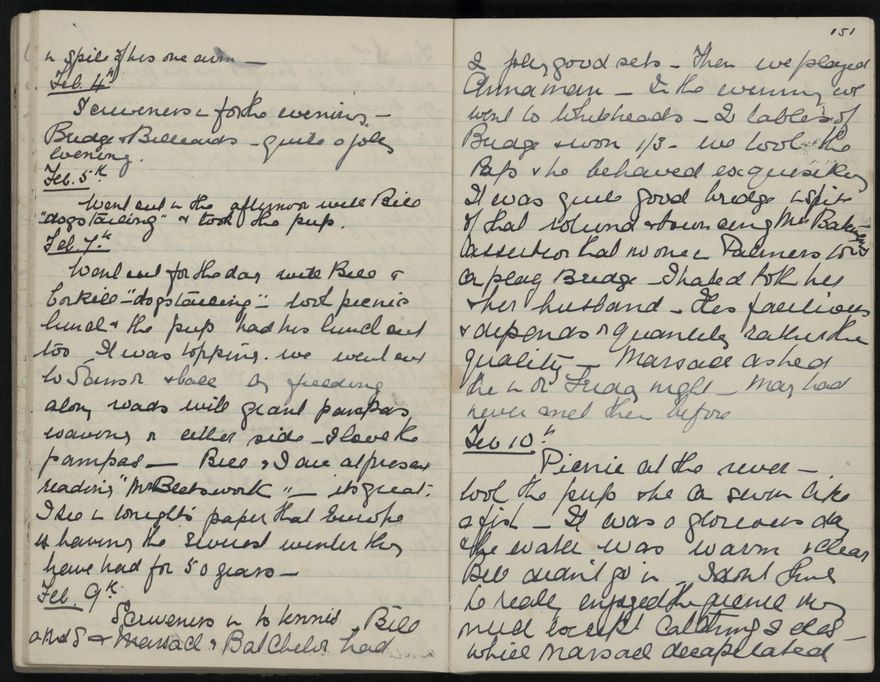 in spite of his one arm —
Feb. 4th
Scriveners in for the evening —
Bridge & Billiards — quite a jolly
evening.
Feb. 5th
Went out in the afternoon with Bill
"dogstailing" & took the pup.
Feb. 7th
Went out for the day with Bill &
"dogstailing" — took picnic
lunch & the pup had his lunch out
too. It was topping. we went out
to Sansor & back by speeding
along roads with giant pampas
waving on either side — I love the
pampas — Bill & I are at present
reading "Mr Beetswork" — its great.
I see in tonight's paper that Europe
is having the severest winter they
have had for 50 years —
Feb. 9th
Scriveners in to tennis. Bill
and S & Marsack & Batchelor had
151
2 jolly good sets — Then we played
Chinaman — In the evening we
went to Whiteheads — 2 tables of
Bridge & won 1/3 — we took the
Pup & he behaved exquisitely
It was quite good bridge in spite
of that rotund & bouncing Mrs
assertion that no one in Palmerston
can play Bridge — I hated both her
& her husband — He's facetious
& depends on quantity rather than
quality — Marsack asked
the on Friday night — May had
never met them before
Feb 10th
Picnic at the river —
took the pup & he can swim like
a fish — It was a glorious day
& the water was warm & clear
Bill didn't go in — I don't think
he really enjoyed the picnic very
much except catching 2 eels —
while Marsack decapitated